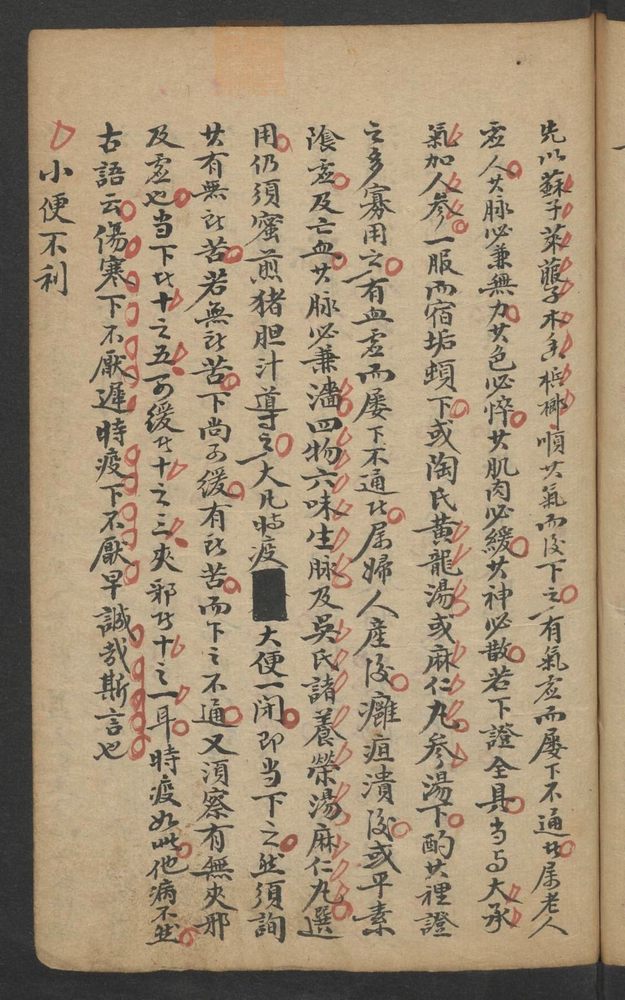 先以蘇子萊菔子木香梹榔順其氣而後下之有氣虛而屢下不通此屬老人
虛人其脉必兼無力其色必悴其肌肉必緩其神必散若下證全具當与大承
氣加人參一服而宿垢頓下或陶氏黃龍湯或麻仁丸參湯下酌其裡證
之多寡用之有血虛而屢下不通此属婦人産後癰疽潰後或平素
陰虛及亡血其脉必兼濇四物六味生脉及吳氏諸養榮湯麻仁丸選
用仍須蜜煎猪胆汁導之大凡時疫大便一闭即当下之然須詢
其有無所苦若無所苦下尚可緩有所苦而下之不通又須察有無夾邪
及虛也当下此十之五可緩此十之三夾邪此十之一耳時疫如此他病不然
古語云傷寒下不厭遲時疫下不厭早誠哉斯言也
小便不利